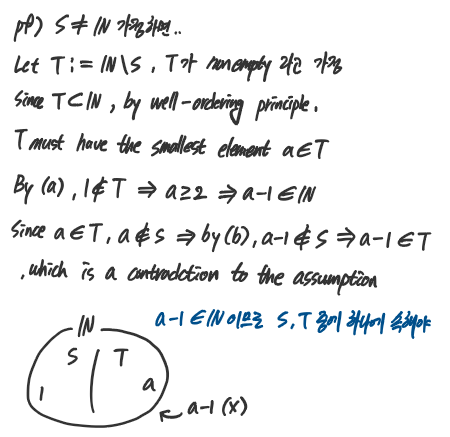 pf) S ≠ ℕ 가정하면..
Let T := ℕ\S, T가 nonempty 라고 가정
Since T⊂ℕ, by well-ordering principle.
T must have the smallest element a∈T
By (a), 1∉T ⇒ a≥2 ⇒ a-1∈ℕ
Since a∈T, a∉S ⇒ by (b), a-1∉S ⇒ a-1∈T
, which is a contradction to the assumption
a-1∈ℕ 이므로 S, T 중에 하나에 속해야
ℕ
S T
1 a
a-1 (x)